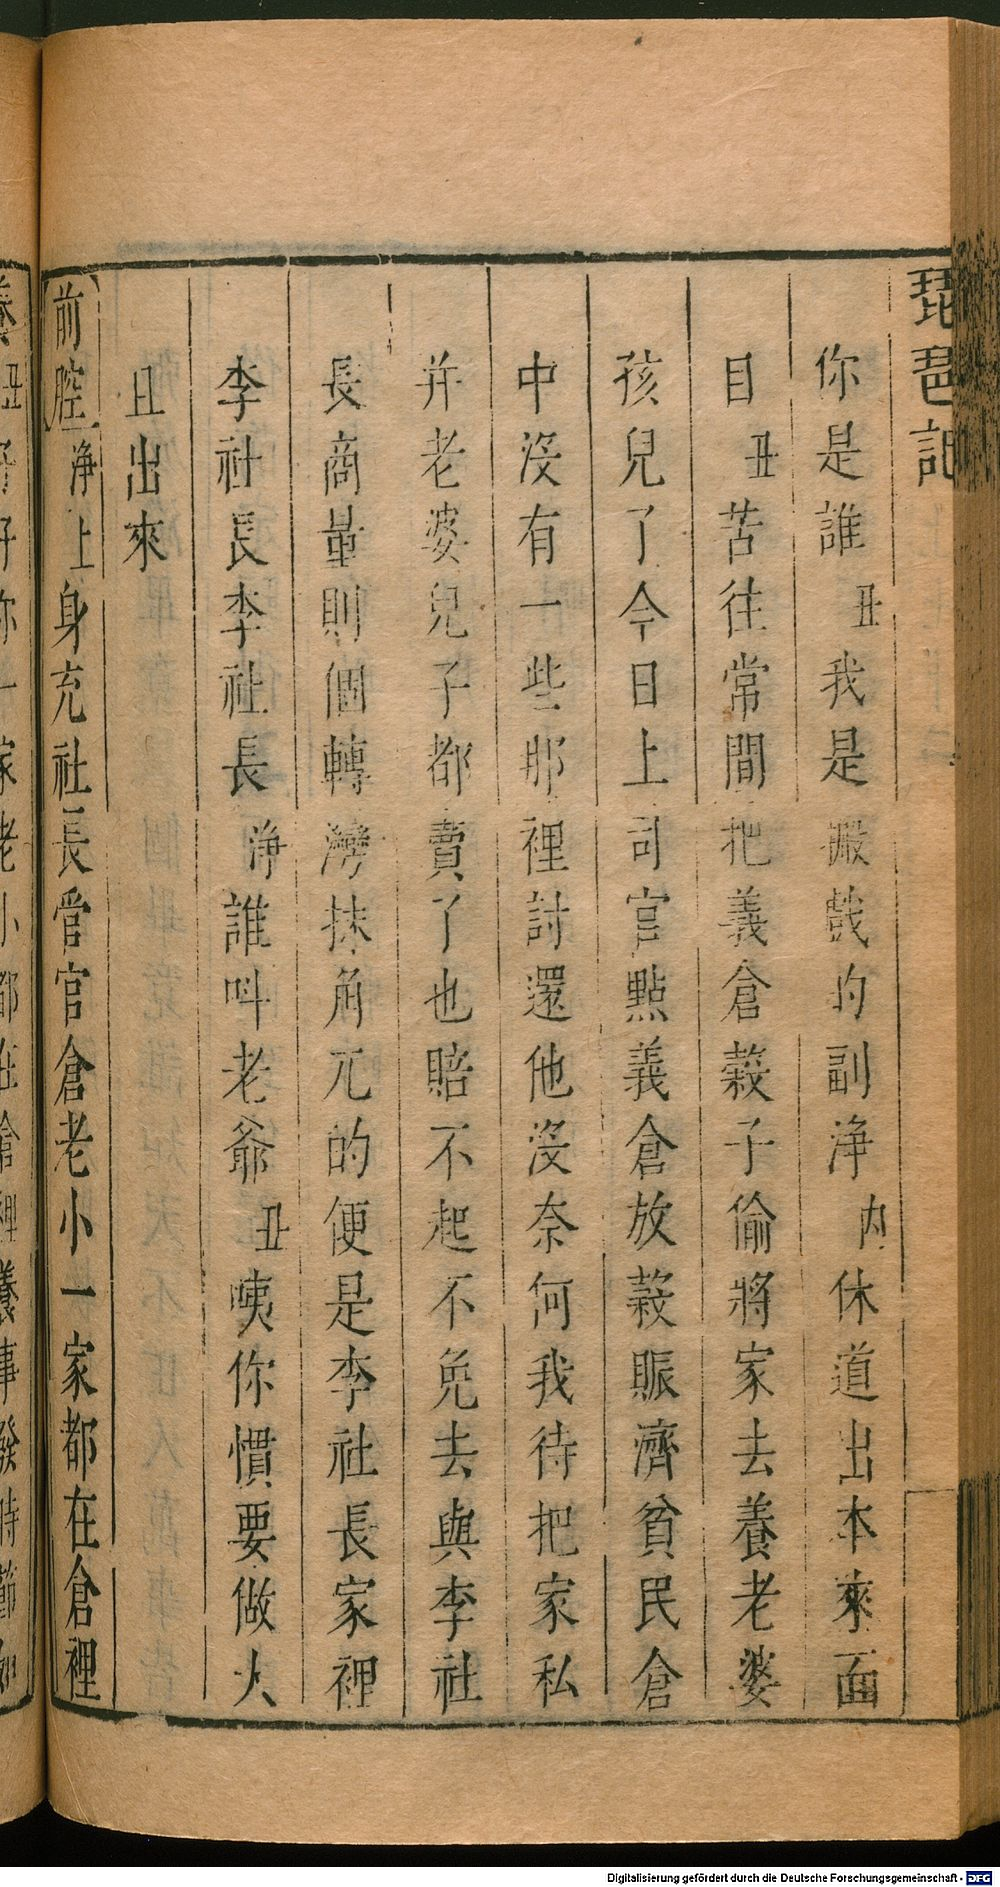 琵琶記
你是誰丑我是搬戲的副淨内休道出本來面
目丑苦往常間把義倉穀子偷將家去養老婆
孩兒了今日上司官點義倉放穀賑濟貧民倉
中沒有一些那裡討還他沒奈何我待把家私
并老婆兒子都賣了也賠不起不免去與李社
長商量則個轉灣抹角兀的便是李社長家裡
李社長李社長淨誰叫老爺丑咦你慣要做大
且出來
前腔淨上身充社長管官倉老小一家都在倉裡
養丑好你一家老小都在倉裡養事發時節如
Digitalisierung gefördert durch die Deutsche Forschungsgemeinschaft - DFG